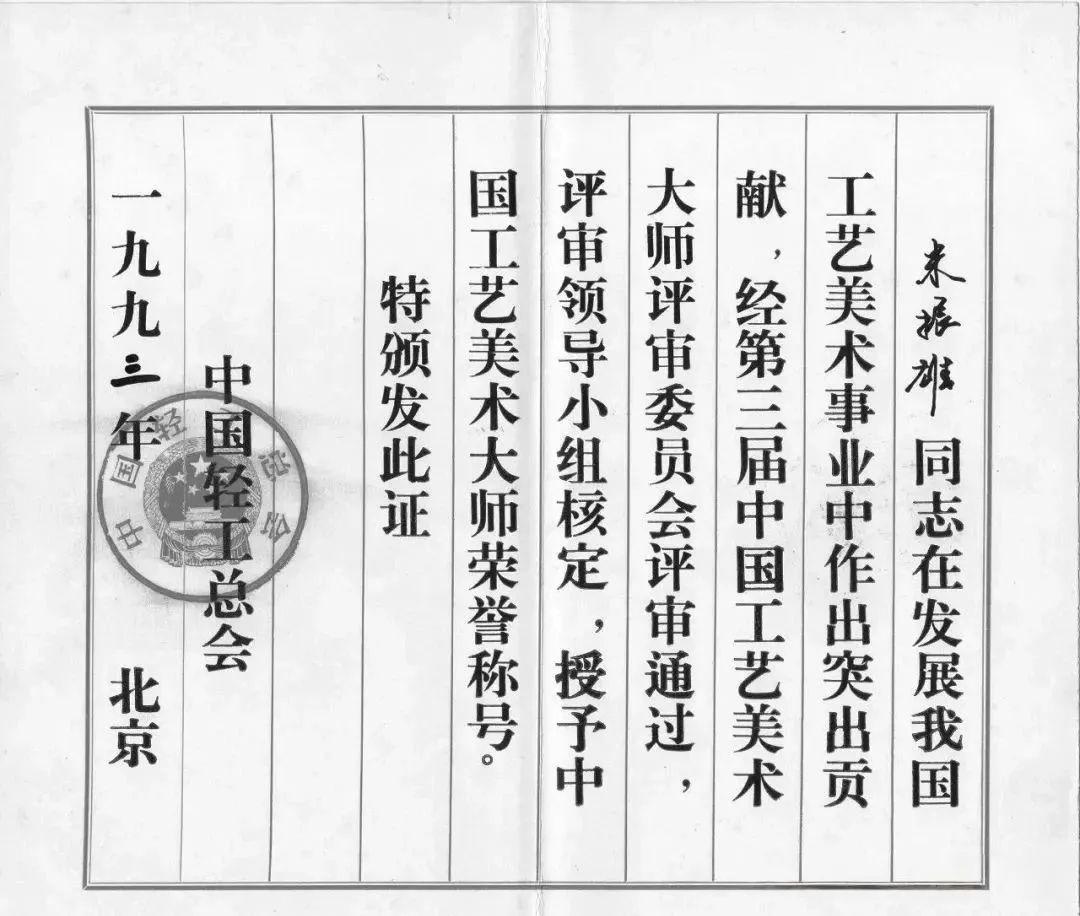 米振雄同志在发展我国
工艺美术事业中作出突出贡
献，经第三届中国工艺美术
大师评审委员会评审通过，
评审领导小组核定，授予中
国工艺美术大师荣誉称号。
特颁发此证
中国轻工总会
一九九三年 北京
中国轻 总会